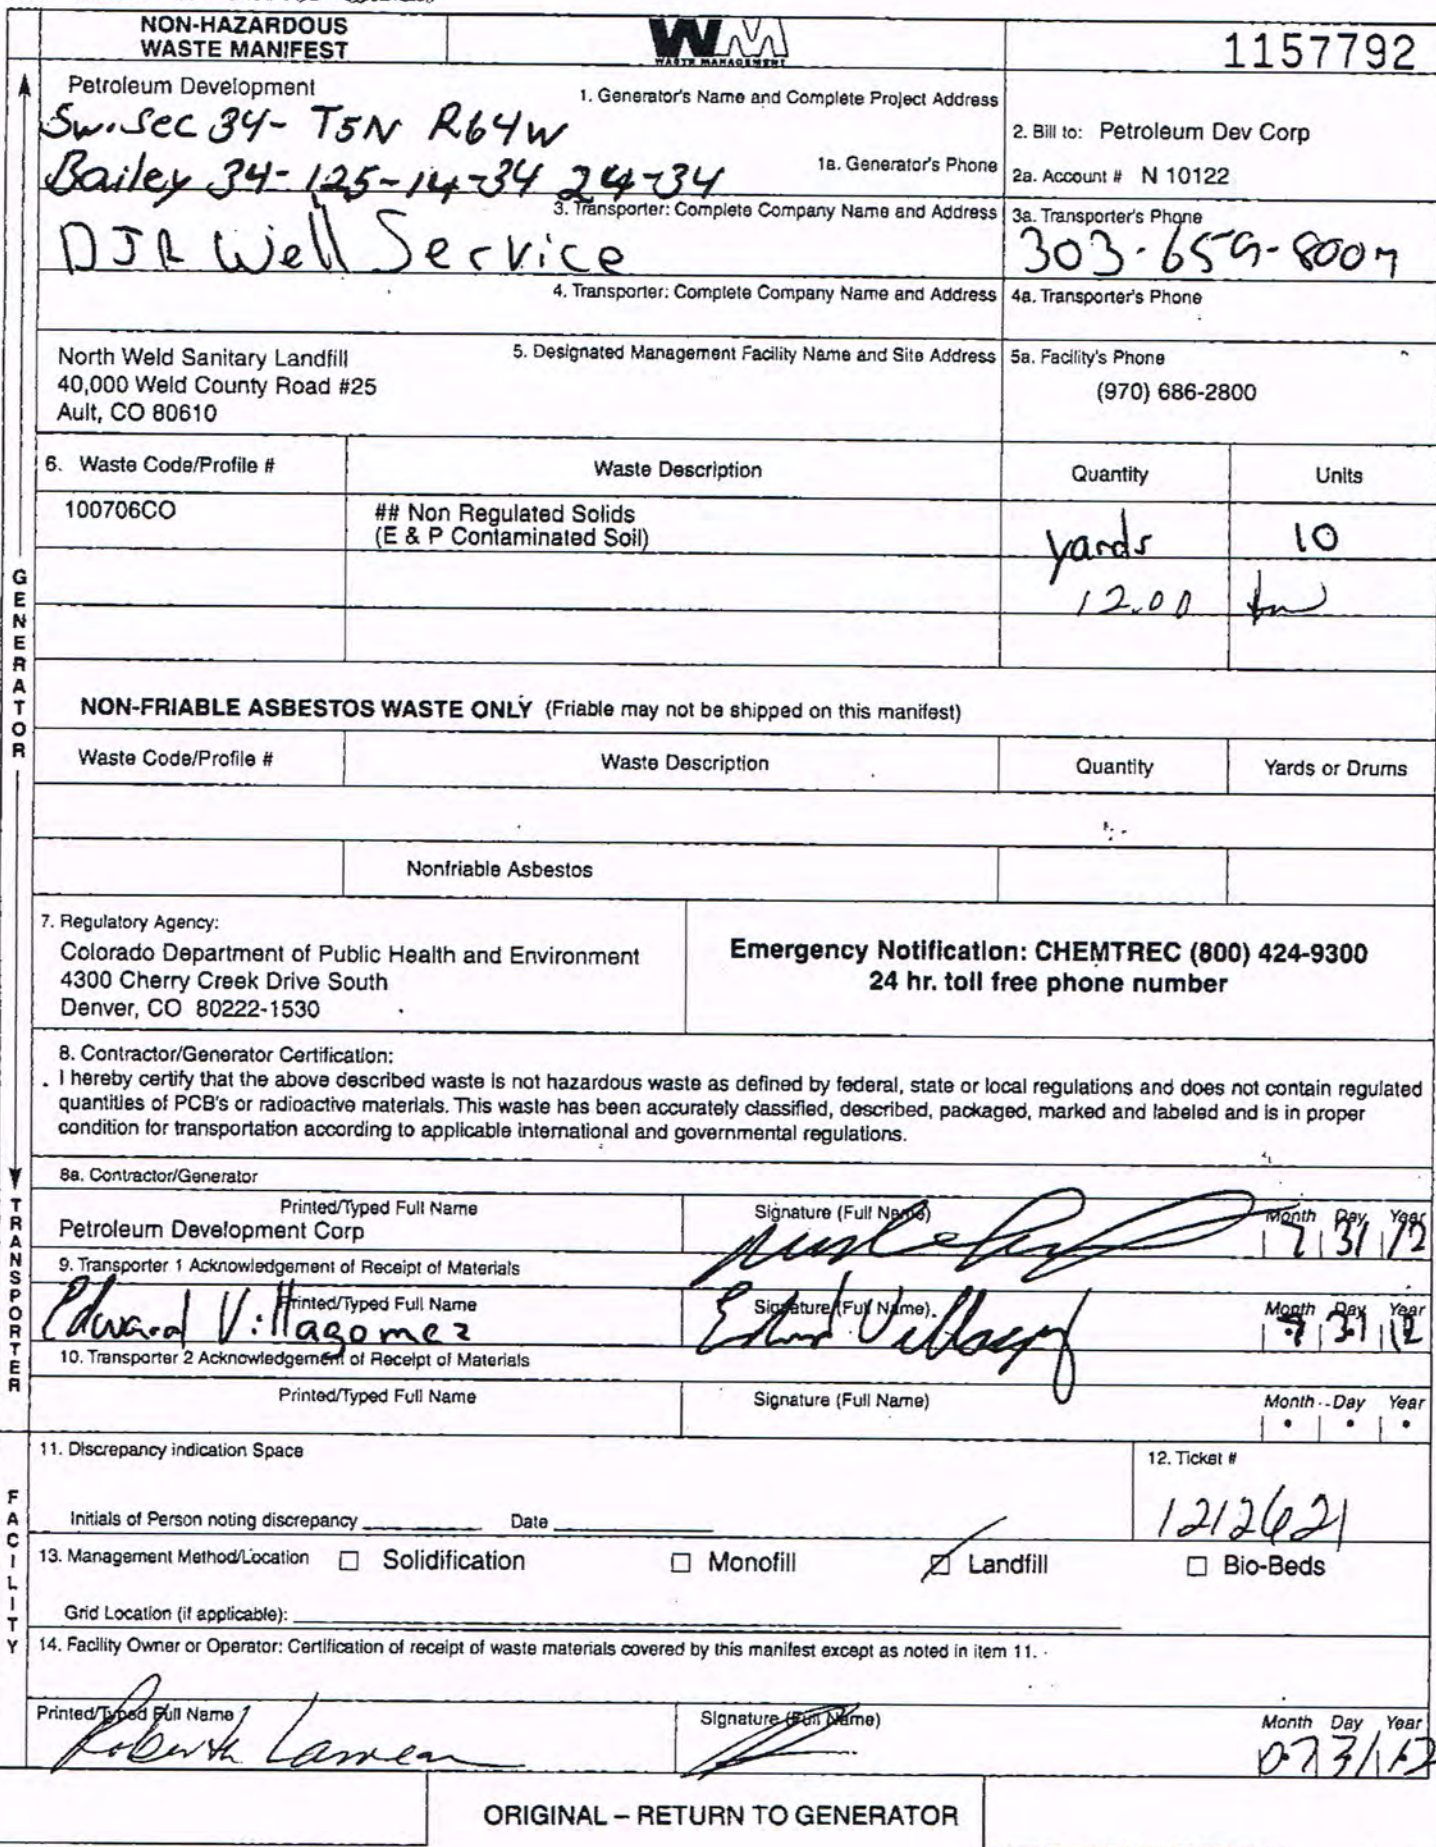 NON-HAZARDOUS
WASTE MANIFEST
WM
WASTE MANAGEMENT
1157792
Petroleum Development
1. Generator's Name and Complete Project Address
Sw. Sec 34- T5N R64W
Bailey 34-125-14-34 24-34
1a. Generator's Phone
2. Bill to: Petroleum Dev Corp
2a. Account # N 10122
3. Transporter: Complete Company Name and Address
DJR Well Service
3a. Transporter's Phone
303-659-8007
4. Transporter: Complete Company Name and Address
4a. Transporter's Phone
North Weld Sanitary Landfill
40,000 Weld County Road #25
Ault, CO 80610
5. Designated Management Facility Name and Site Address
5a. Facility's Phone
(970) 686-2800
6. Waste Code/Profile # Waste Description Quantity Units
100706CO ## Non Regulated Solids
(E & P Contaminated Soil) yards 10
12.00
NON-FRIABLE ASBESTOS WASTE ONLY (Friable may not be shipped on this manifest)
Waste Code/Profile # Waste Description Quantity Yards or Drums
Nonfriable Asbestos
7. Regulatory Agency:
Colorado Department of Public Health and Environment
4300 Cherry Creek Drive South
Denver, CO 80222-1530
Emergency Notification: CHEMTREC (800) 424-9300
24 hr. toll free phone number
8. Contractor/Generator Certification:
I hereby certify that the above described waste is not hazardous waste as defined by federal, state or local regulations and does not contain regulated
quantities of PCB's or radioactive materials. This waste has been accurately classified, described, packaged, marked and labeled and is in proper
condition for transportation according to applicable international and governmental regulations.
8a. Contractor/Generator
Printed/Typed Full Name Signature (Full Name) Month Day Year
Petroleum Development Corp 7 31 12
9. Transporter 1 Acknowledgement of Receipt of Materials
Printed/Typed Full Name Signature (Full Name) Month Day Year
Edward Villagomez 7 31 12
10. Transporter 2 Acknowledgement of Receipt of Materials
Printed/Typed Full Name Signature (Full Name) Month Day Year
11. Discrepancy indication Space
12. Ticket #
1212621
Initials of Person noting discrepancy Date
13. Management Method/Location Solidification Monofill Landfill Bio-Beds
Grid Location (if applicable):
14. Facility Owner or Operator: Certification of receipt of waste materials covered by this manifest except as noted in item 11.
Printed/Typed Full Name Signature (Full Name) Month Day Year
07 31 12
ORIGINAL – RETURN TO GENERATOR
GENERATOR
TRANSPORTER
FACILITY